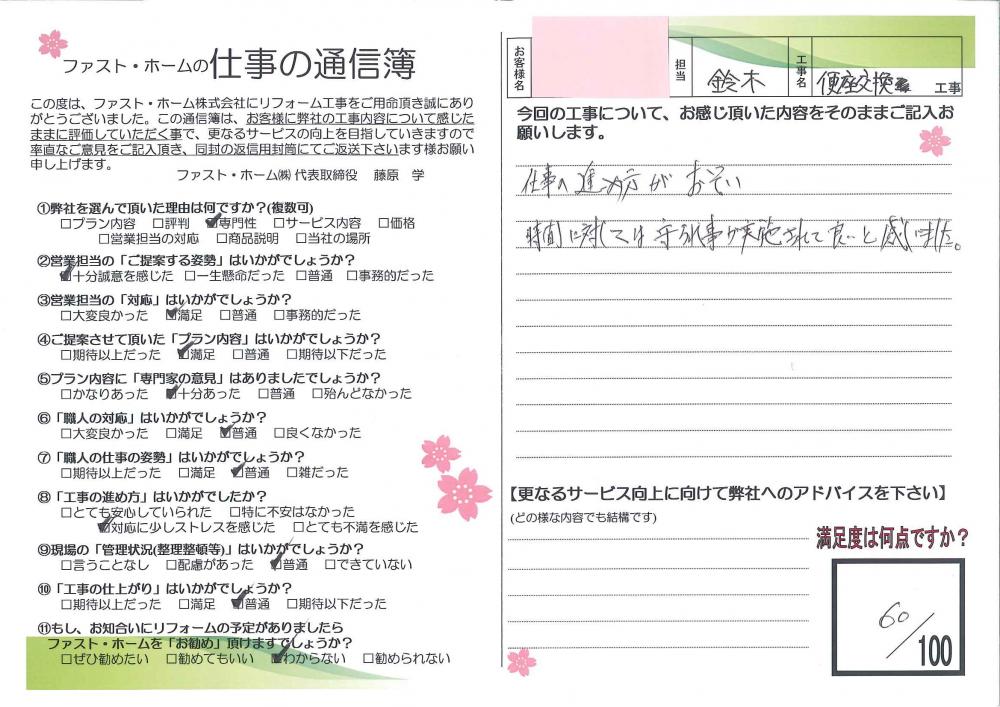 ファスト・ホームの仕事の通信簿
この度は、ファスト・ホーム株式会社にリフォーム工事をご用命頂き誠にあり
がとうございました。この通信簿は、お客様に弊社の工事内容について感じた
ままに評価していただく事で、更なるサービスの向上を目指していきますので
率直なご意見をご記入頂き、同封の返信用封筒にてご返送下さいます様お願い
申し上げます。
ファスト・ホーム㈱ 代表取締役 藤原 学
①弊社を選んで頂いた理由は何ですか?(複数可)
□プラン内容 □評判 ☑専門性 □サービス内容 □価格
□営業担当の対応 □商品説明 □当社の場所
②営業担当の「ご提案する姿勢」はいかがでしょうか?
☑十分誠意を感じた □一生懸命だった □普通 □事務的だった
③営業担当の「対応」はいかがでしょうか?
□大変良かった ☑満足 □普通 □事務的だった
④ご提案させて頂いた「プラン内容」はいかがでしょうか?
□期待以上だった ☑満足 □普通 □期待以下だった
⑤プラン内容に「専門家の意見」はありましたでしょうか?
□かなりあった ☑十分あった □普通 □殆んどなかった
⑥「職人の対応」はいかがでしょうか?
□大変良かった □満足 ☑普通 □良くなかった
⑦「職人の仕事の姿勢」はいかがでしょうか?
□期待以上だった □満足 ☑普通 □雑だった
⑧「工事の進め方」はいかがでしたか?
□とても安心していられた □特に不安はなかった
☑対応に少しストレスを感じた □とても不満を感じた
⑨現場の「管理状況(整理整頓等)」はいかがでしょうか?
□言うことなし □配慮があった ☑普通 □できていない
⑩「工事の仕上がり」はいかがでしょうか?
□期待以上だった □満足 ☑普通 □期待以下だった
⑪もし、お知合いにリフォームの予定がありましたら
ファスト・ホームを「お勧め」頂けますでしょうか?
□ぜひ勧めたい □勧めてもいい ☑わからない □勧められない
お客様名 担当 鈴木 工事名 便座交換 工事
今回の工事について、お感じ頂いた内容をそのままご記入お
願いします。
仕事の進め方が おそい
時間に対しては守られ事が実施されて良いと感じました。
【更なるサービス向上に向けて弊社へのアドバイスを下さい】
(どの様な内容でも結構です)
満足度は何点ですか?
60/100